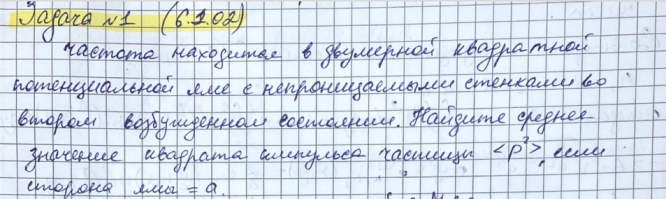 Задача №1 (6.1.02)
частота находитсе в двумерной квадратной
потенциальной яме с непроницаемыми стенками во
втором возбужденном состоянии. Найдите среднее
значение квадрата импульса частицы <p²>, если
сторона ямы = a.